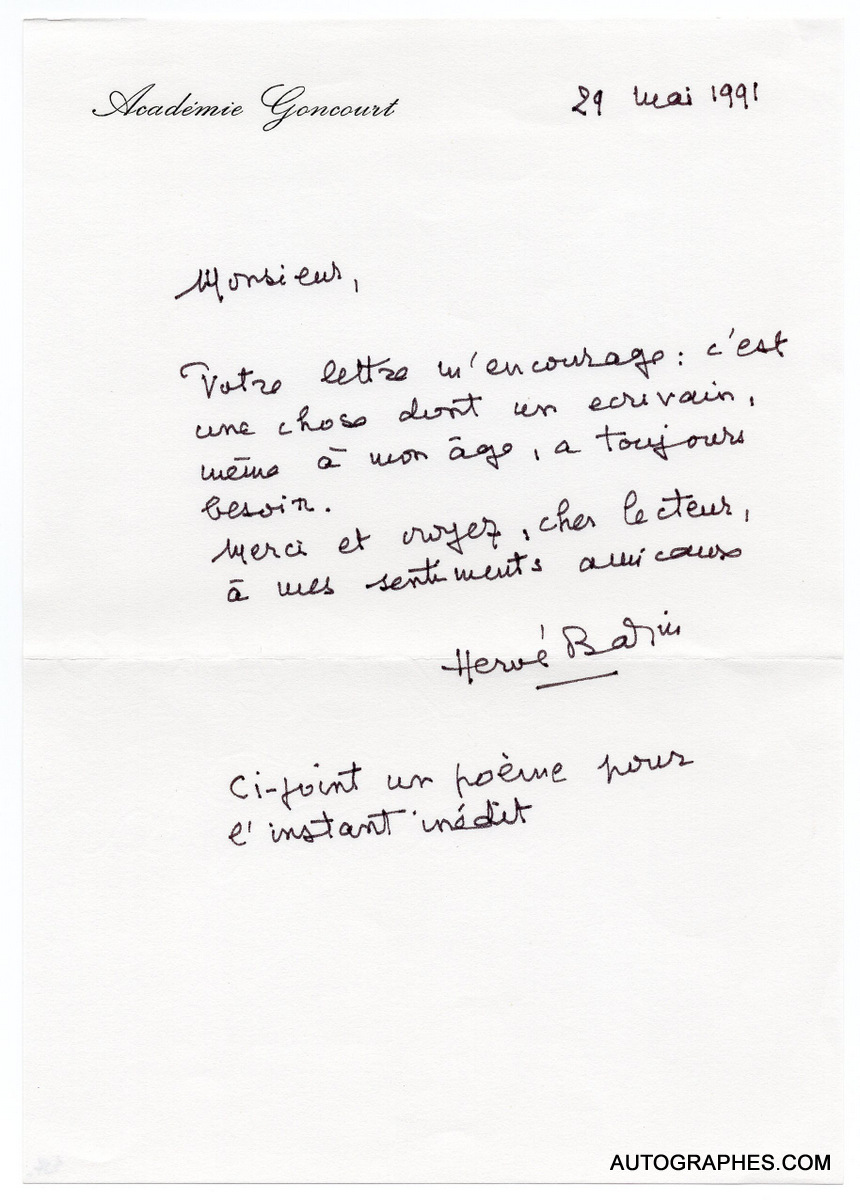 Académie Goncourt
29 mai 1991
Monsieur,
Votre lettre m'encourage : c'est
une chose dont un ecrivain,
même à mon âge, a toujours
besoin.
Merci et croyez, cher lecteur,
à mes sentiments amicaux
Hervé Bazin
Ci-joint un poème pour
l'instant inédit
AUTOGRAPHES.COM